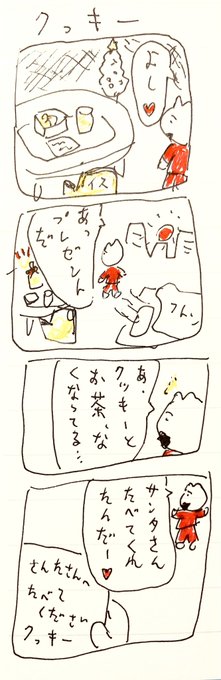 クッキー
よし♥
イス
あっ
プレゼント
だ
あ、
クッキーと
お茶、な
くなってる…
サンタさん
たべてくれ
たんだー♥
さんたさんへ
たべて
ください
クッキー